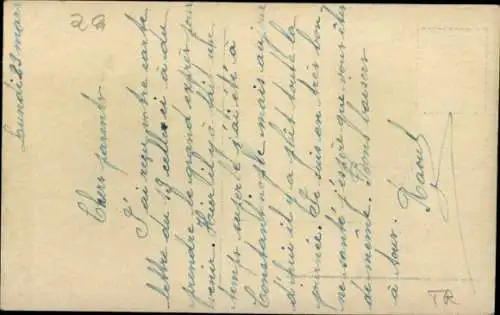 Lundi 23 mars
Chers parents
J'ai reçu votre carte
lettre du 13 celle-ci a du
prendre le grand express pour
venir. Hier il y a fait un
temps superbe j'ai été à
Constantinople mais aujour
d'hui il y a plut toute la
journée. Je suis en très bon
ne santé j'espère que vous êtes
de même. Bons baisers
à tous.
Raoul
22
TR